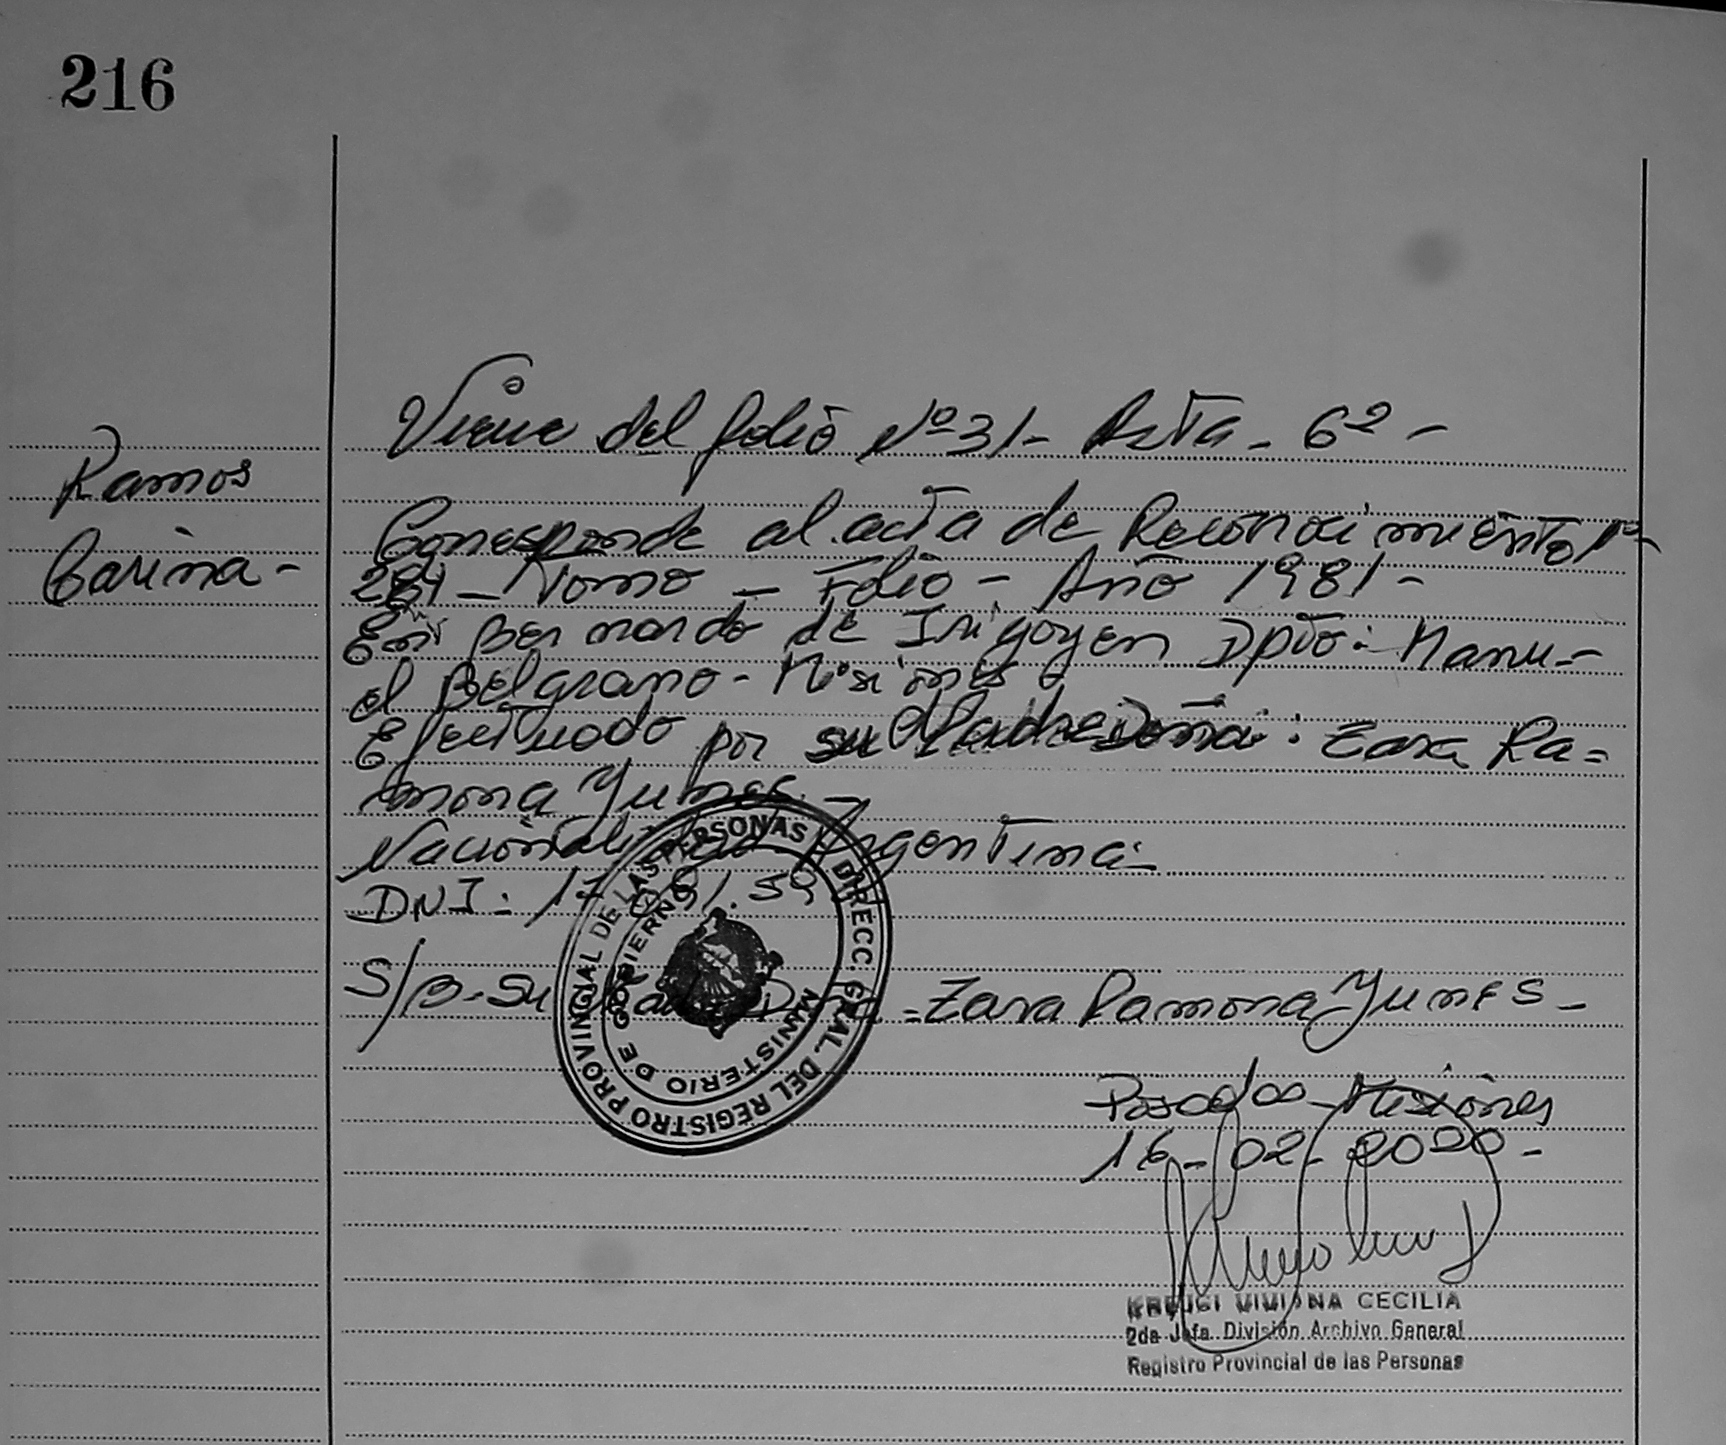 216
Viene del folio Nº 31- Acta - 62 -
Ramos
Carina -
Corresponde al acta de Reconocimiento Nº
284 - Tomo - Folio - Año 1981 -
En Bernardo de Irigoyen Dpto: Manu-
el Belgrano - Misiones
Efectuado por su Madre Doña: Zara Ra=
mona Yunes -
Nacionalidad Argentina -
DNI: 17 091.59
S/B - Su Madre Dña = Zara Ramona Yunes -
Posadas - Misiones
16 - 02 - 2020 -
DIRECC. GRAL. DEL REGISTRO PROVINCIAL DE LAS PERSONAS
MINISTERIO DE GOBIERNO
VIVIANA CECILIA
2da Jefa División Archivo General
Registro Provincial de las Personas